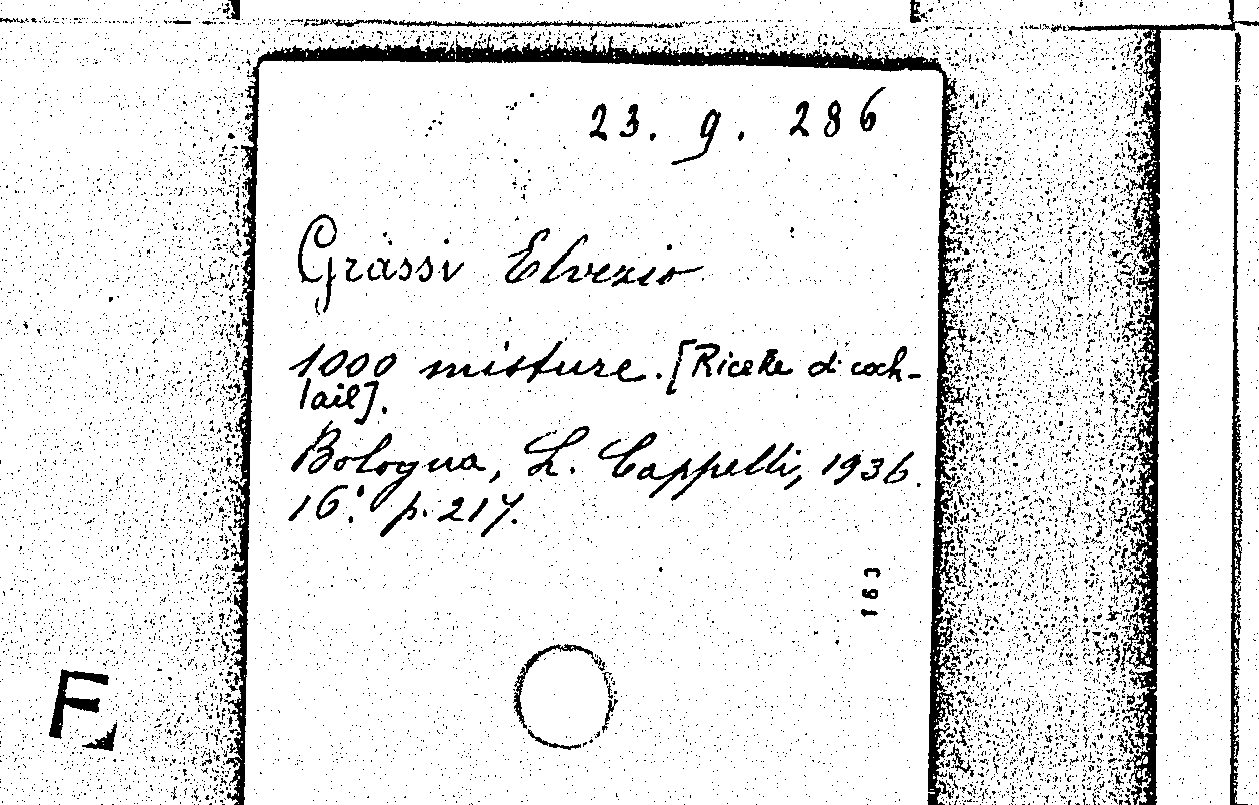 23. 9. 286
Grassi Elvezio
1000 misture. [Ricette di cock-
tail].
Bologna, L. Cappelli, 1936.
16°. p. 217.
163
F